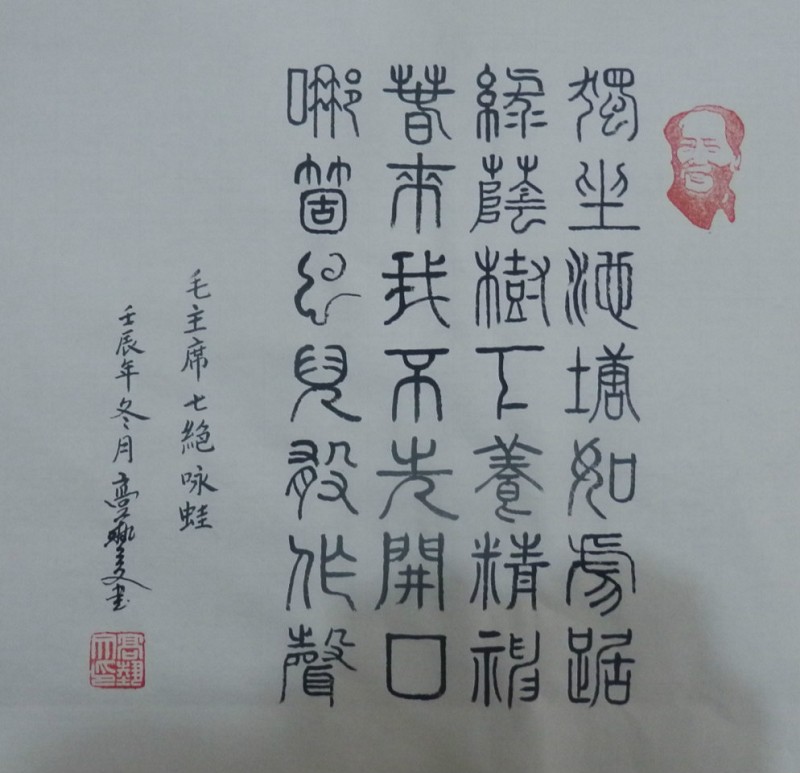 獨坐池塘如虎踞
綠蔭樹下養精神
春來我不先開口
哪箇虫兒敢作聲
毛主席七絕咏蛙
壬辰年冬月書